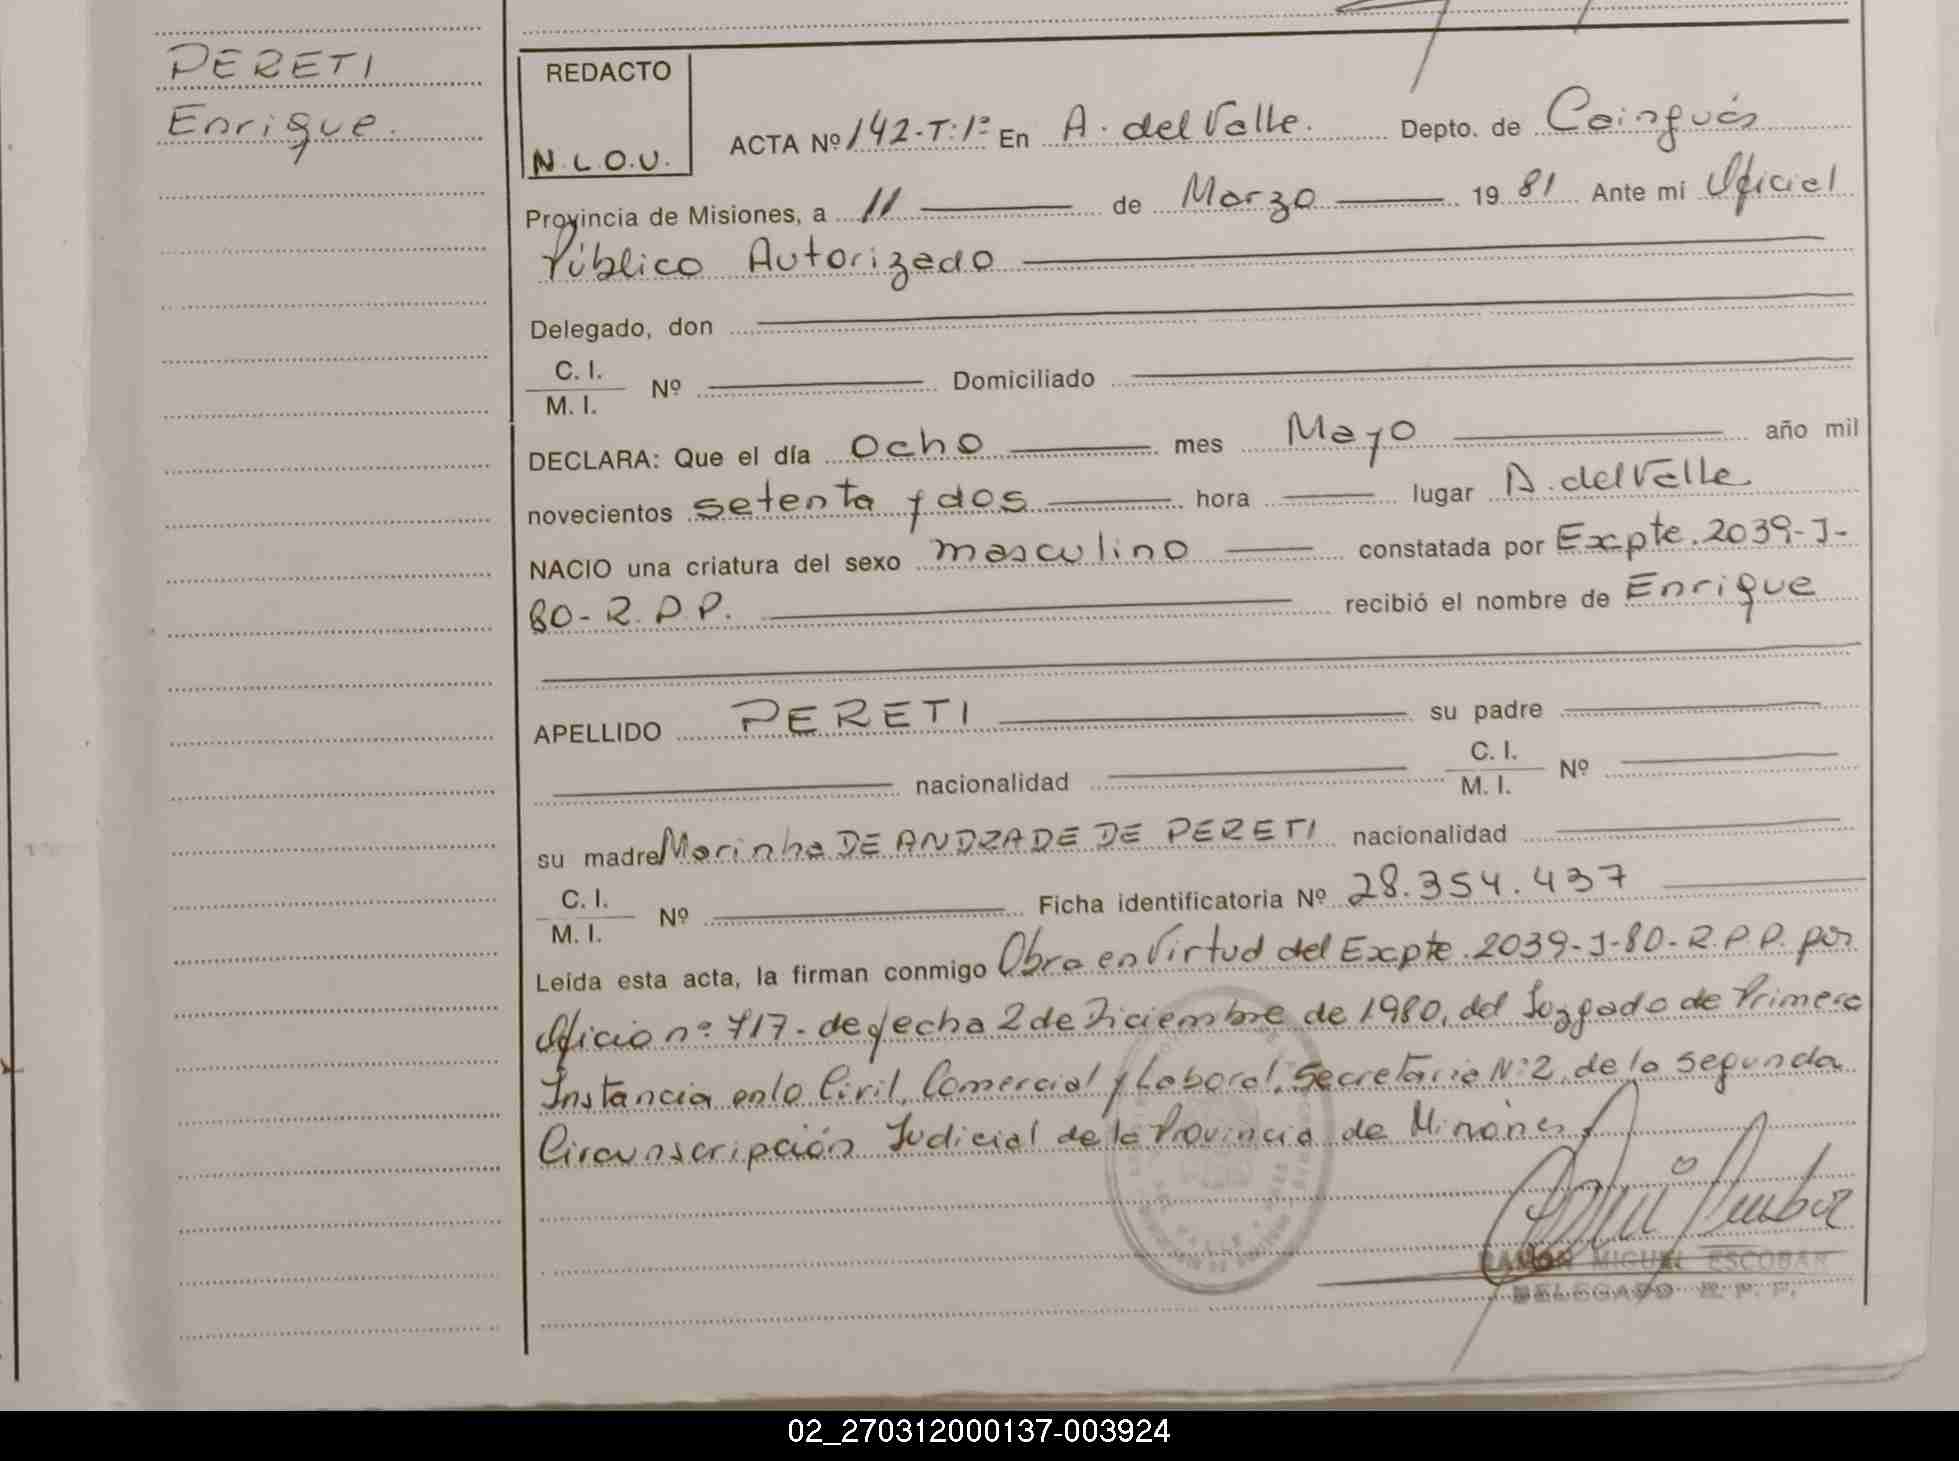 PERETI
Enrique.
REDACTO
N.L.O.U.
ACTA Nº 142-T:1º En A. del Valle. Depto. de Caingués
Provincia de Misiones, a 11 de Marzo 1981 Ante mi Oficial
Público Autorizado
Delegado, don
C. I.
M. I. Nº Domiciliado
DECLARA: Que el día ocho mes Mayo año mil
novecientos setenta y dos hora lugar A. del Valle
NACIO una criatura del sexo masculino constatada por Expte. 2039-J-
80-R.P.P. recibió el nombre de Enrique
APELLIDO PERETI su padre
nacionalidad C. I.
M. I. Nº
su madre Marinha DE ANDRADE DE PERETI nacionalidad
C. I.
M. I. Nº Ficha identificatoria Nº 28.354.437
Leída esta acta, la firman conmigo Obra en Virtud del Expte. 2039-J-80-R.P.P. por
Oficio nº 717- de fecha 2 de Diciembre de 1980, del Juzgado de Primera
Instancia en lo Civil, Comercial y Laboral, Secretaria Nº2, de la segunda
Circunscripción Judicial de la Provincia de Misiones
RAMON MIGUEL ESCOBAR
DELEGADO R. P. P.
02_270312000137-003924